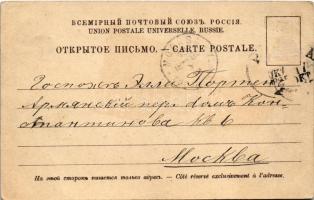 ВСЕМІРНЫЙ ПОЧТОВЫЙ СОЮЗЪ. РОССІЯ.
UNION POSTALE UNIVERSELLE. RUSSIE.
ОТКРЫТОЕ ПИСЬМО. — CARTE POSTALE.
Госпожѣ Элла Портен
Армянскій пер. домъ Кон-
стантинова кв 6
Москва
На этой сторонѣ пишется только адресъ. — Côté réservé exclusivement à l'adresse.